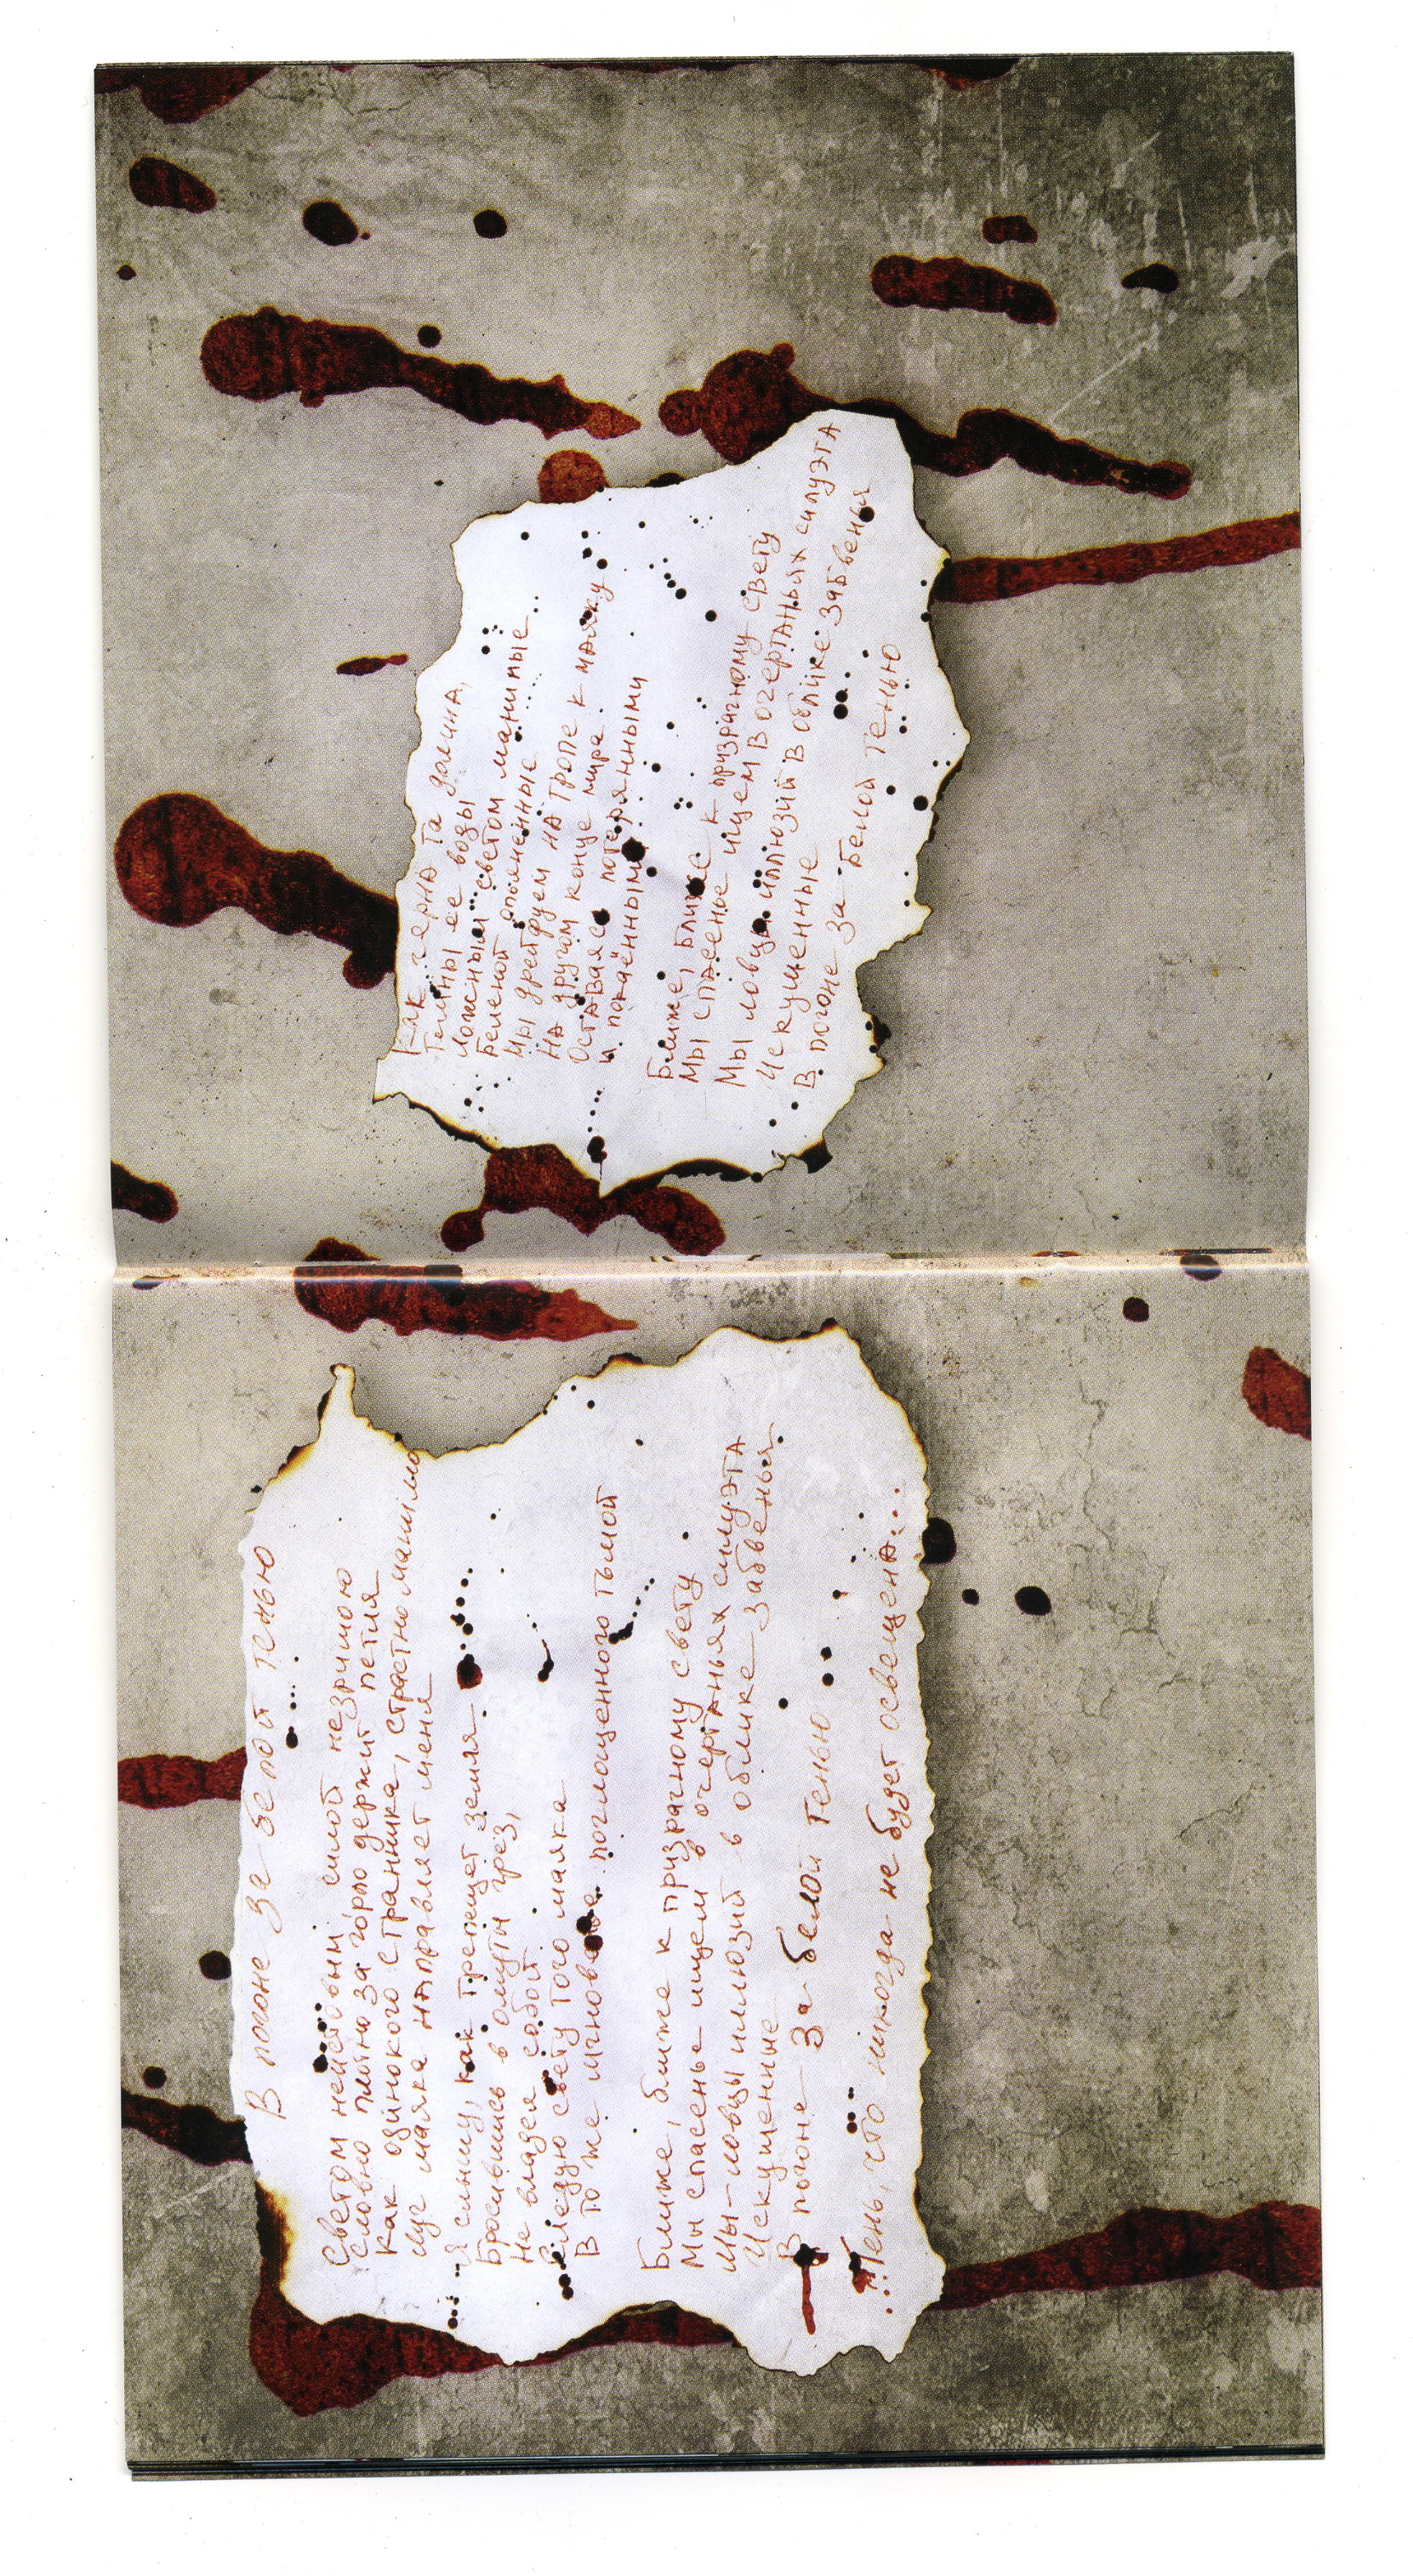 В погоне за белой тенью
Светом неистовым силой незримою
Словно плотно за горло держит петля
Как одинокого странника, страстно манимло
луч маяка направляет меня
Я слышу, как трепещет земля
Бросившись в омуты грёз,
Не владея собой
Следую свету того маяка
В то же мгновенье поглощенного тьмой
Ближе, ближе к призрачному свету
Мы спасенье ищем в очертаньях силуэта
Мы-ловцы иллюзий в облике забвенья
Искушенные
В погоне за белой тенью
...Тень, что никогда не будет освещена...
Как черна та долина,
Темны её воды
ложным светом манимые
Беленой опоенные
Мы дрейфуем на тропе к маяку
На другом конце мира
Оставаясь потерянными
и покаёнными
Ближе, ближе к призрачному свету
Мы спасенье ищем в очертаньях силуэта
Мы ловцы иллюзий в облике забвенья
Искушенные
В погоне за белой тенью